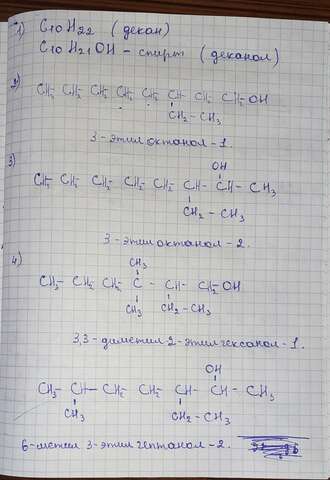 1) C10H22 (декан)
C10H21OH - спирт (деканол)
2) CH3 - CH2 - CH2 - CH2 - CH2 - CH - CH2 - CH2OH
CH2 - CH3
3-этил октанол-1.
3)
OH
CH3 - CH2 - CH2 - CH2 - CH2 - CH - CH - CH3
CH2 - CH3
3-этил октанол-2.
4)
CH3
CH3 - CH2 - CH2 - C - CH - CH2OH
CH3 CH2 - CH3
3,3-диметил-2-этилгексанол-1.
OH
CH3 - CH - CH2 - CH2 - CH - CH - CH3
CH3 CH2 - CH3
6-метил 3-этил гептанол-2.